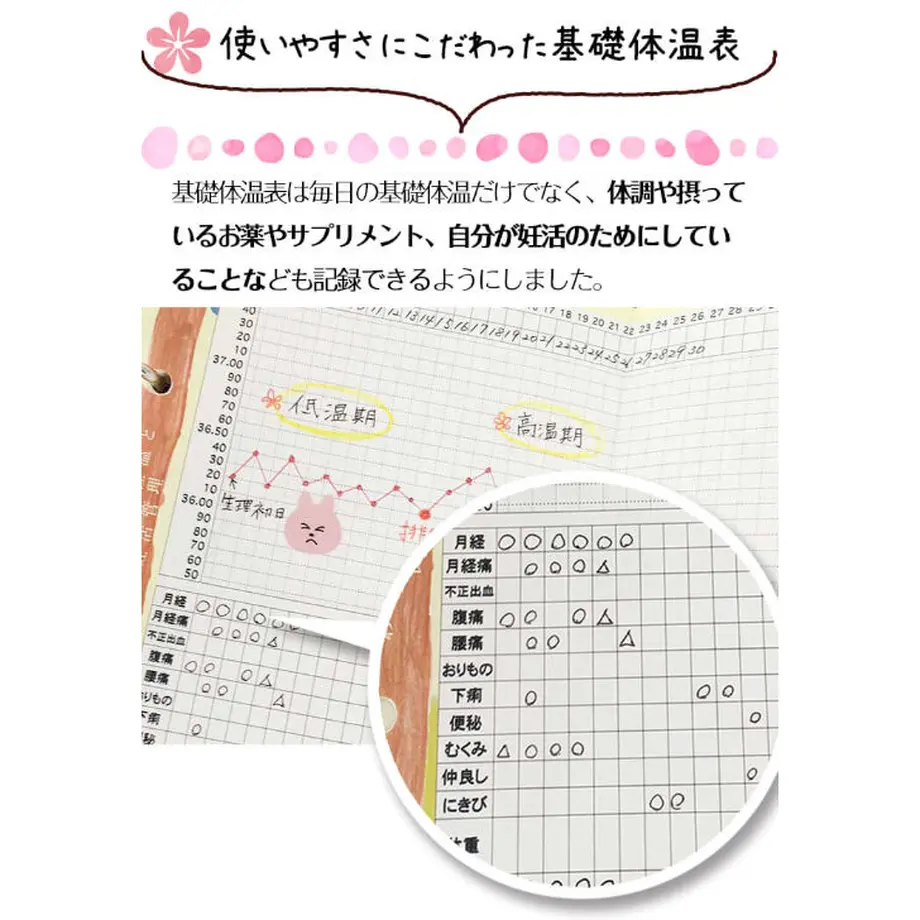 使いやすさにこだわった基礎体温表
基礎体温表は毎日の基礎体温だけでなく、体調や摂って
いるお薬やサプリメント、自分が妊活のためにしてい
ることなども記録できるようにしました。
17 18 19 20 21 22 23 24 25 26 27 28
11 12 13 14 15 16 17 18 19 20 21 22 23 24 25 26 27 28 29 30
40
30
20
10
37.00
90
80
70
60
36.50
40
30
20
10
36.00
90
80
70
60
50
低温期
高温期
生理初日
月経
月経痛
不正出血
腹痛
腰痛
おりもの
下痢
便秘
月経
月経痛
不正出血
腹痛
腰痛
おりもの
下痢
便秘
むくみ
仲良し
にきび
体重